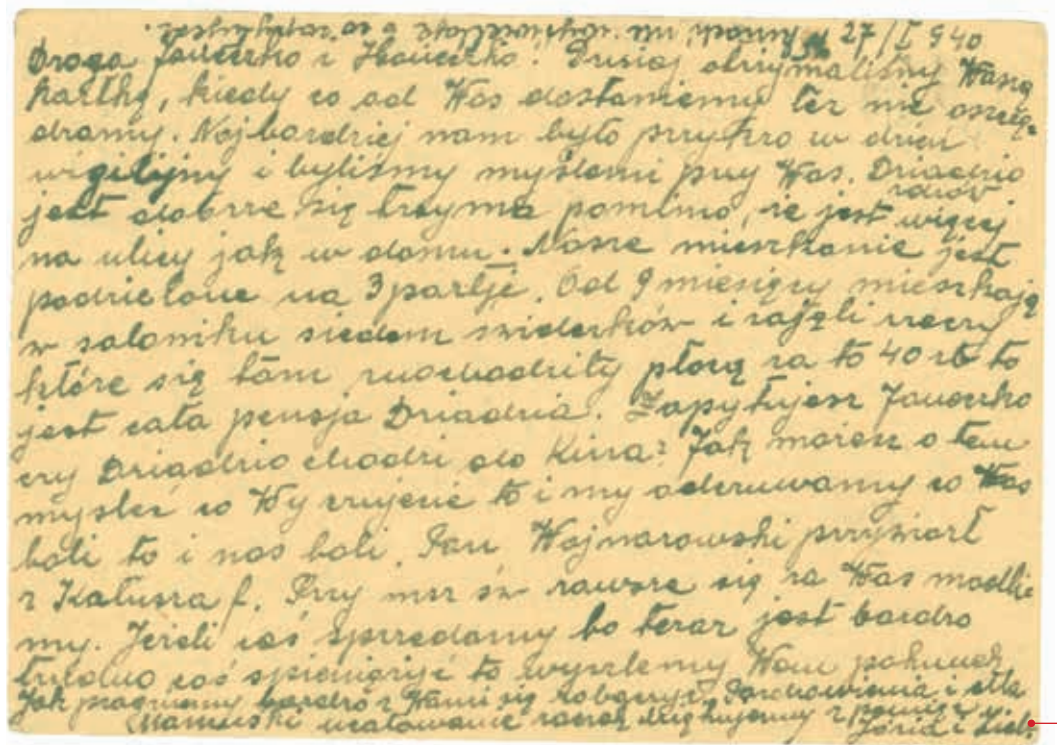 27/I 940
Droga Janeczko i Haneczko! Dzisiaj otrzymaliśmy Waszą
kartkę, kiedy co od Was dostaniemy łez nie oszczę-
dzamy. Najbardziej nam było przykro w dzień
wigilijny i byliśmy myślami przy Was. Dziadzio
jest zdrów
dobrze się trzyma pomimo, że jest więcej
na ulicy jak w domu. Nasze mieszkanie jest
podzielone na 3 partje. Od 9 miesięcy mieszkają
w saloniku siedem i zajęli rzeczy
które się tam znachodziły płacą za to 40 rb to
jest cała pensja Dziadzia. Zapytujesz Janeczko
czy Dziadzio chodzi do Kina? Jak możesz o tem
myśleć co Wy czujecie to i my odczuwamy co Was
boli to i nas boli. Pan Wojnarowski przyniósł
z Kałusza f. Przy mszy św zawsze się za Was modli-
my. Jeżeli coś sprzedamy bo teraz jest bardzo
trudno coś spieniężyć to wyszlemy Wam pakunek
Jak pragniemy bardzo z Wami się zobaczyć. Pozdrowienia i dla
Mamuski ucałowanie rączek dziękujemy z pamięć
Józia i